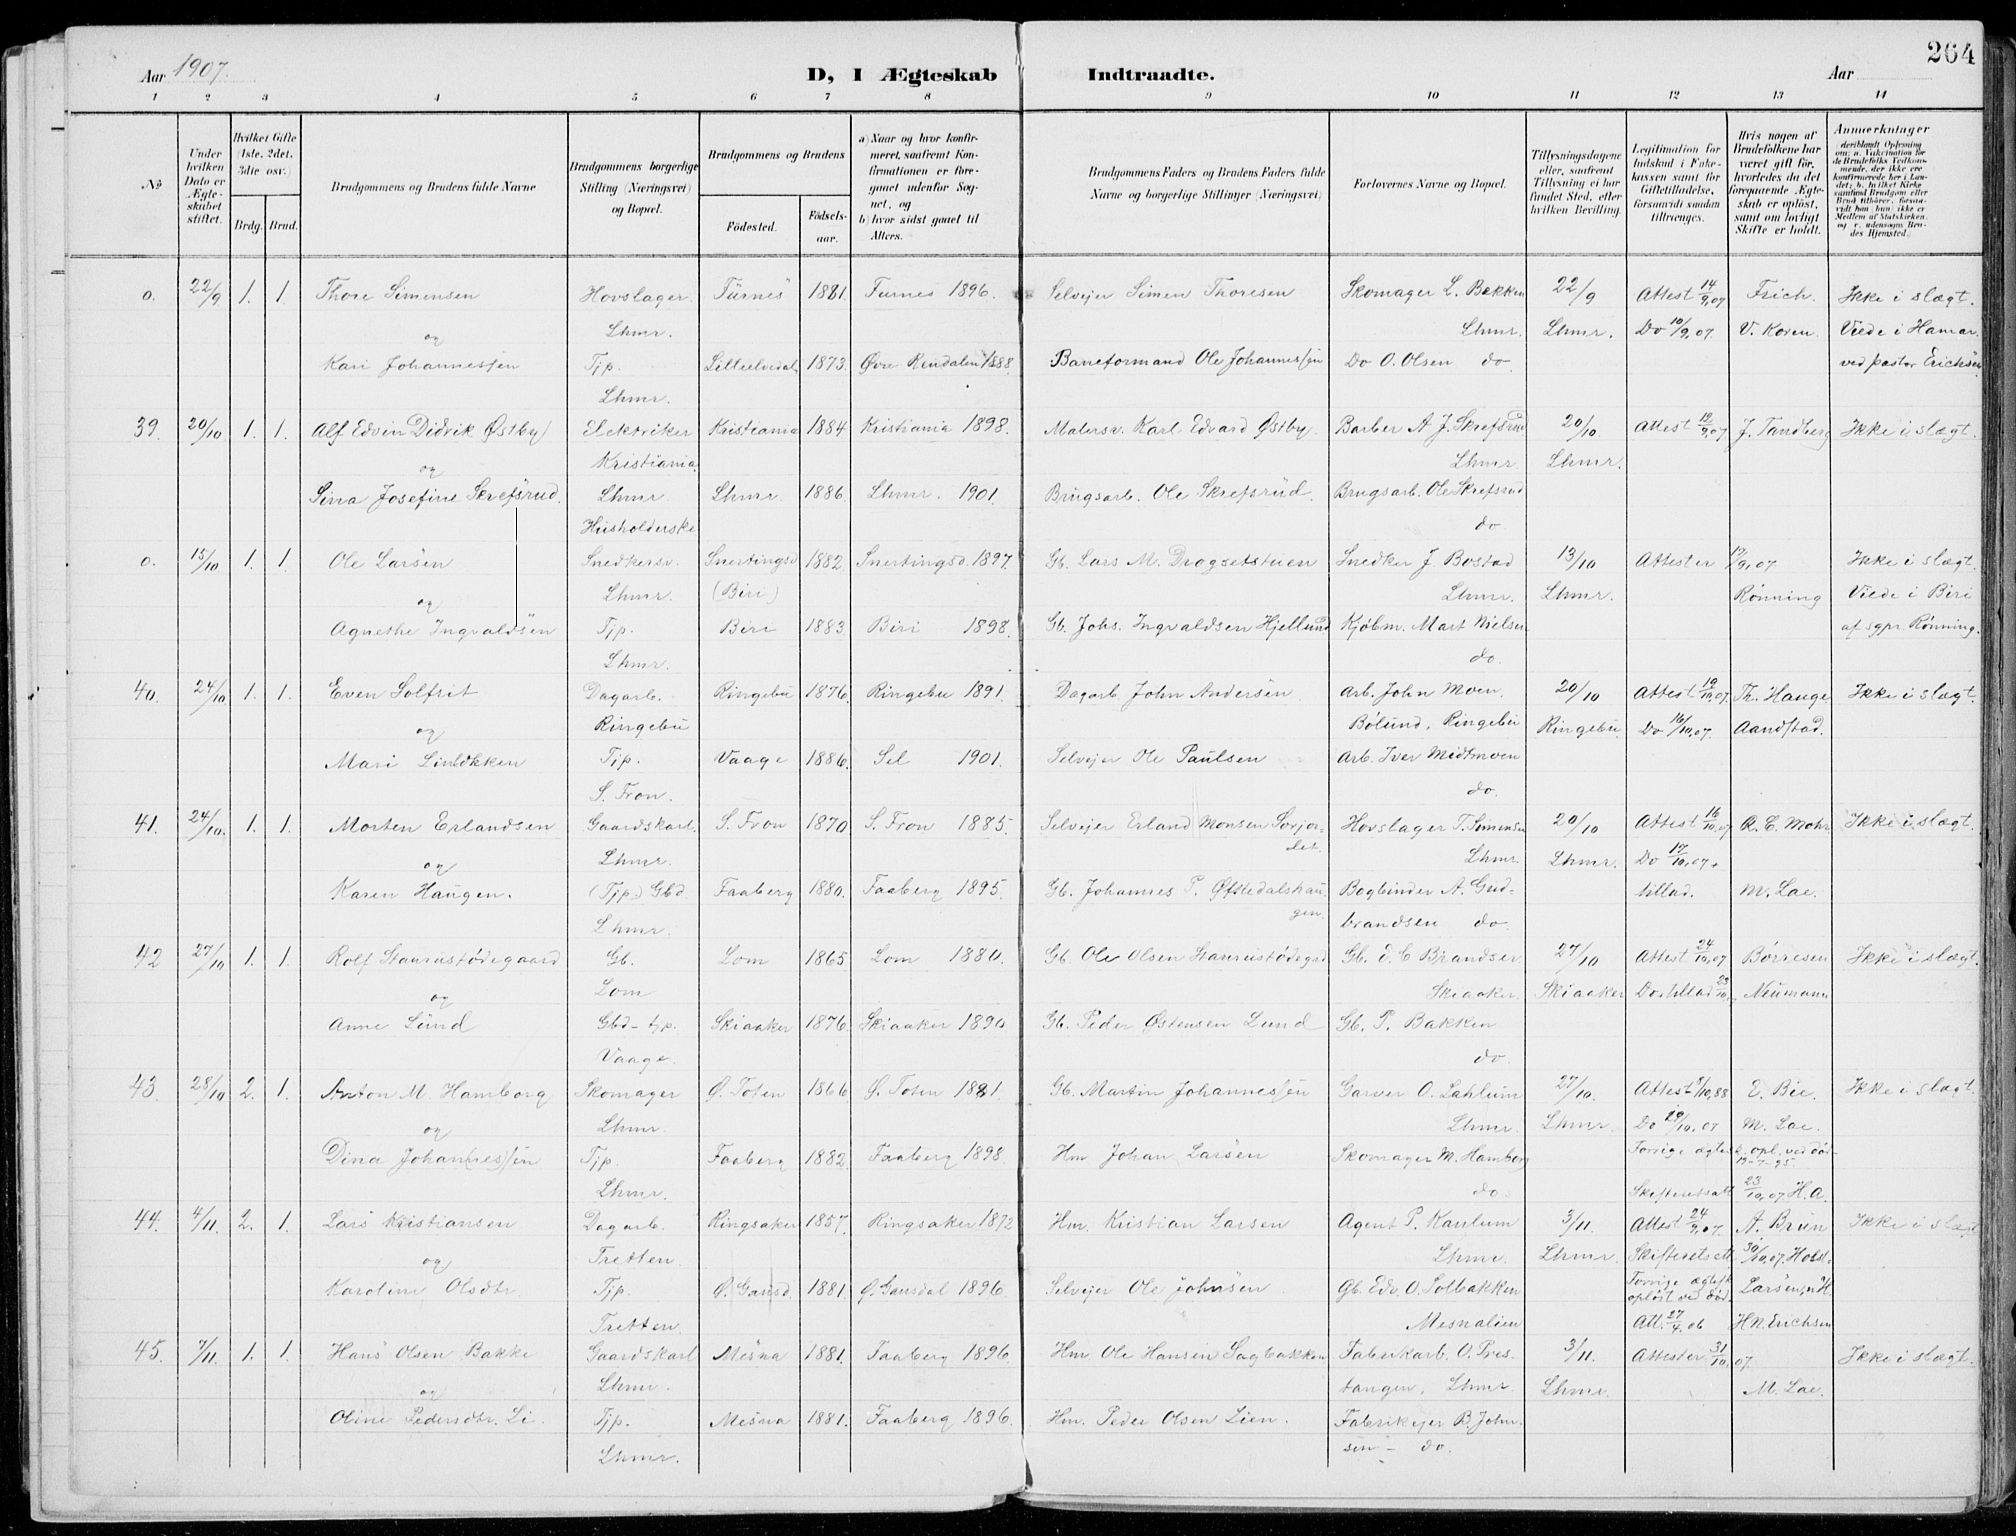 Aar 1907.
D, I Ægteskab Indtraadte.
Aar
264
1 2 3 4 5 6 7 8 9 10 11 12 13 14
No
Under hvilken Dato er Ægteskabet stiftet.
Hvilket Gifte (1ste, 2det, 3die osv.)
Brdg. Brud.
Brudgommens og Brudens fulde Navne
Brudgommens borgerlige Stilling (Næringsvei) og Bopæl.
Brudgommens og Brudens
Fødested.
Fødsels-aar.
a) Naar og hvor konfirmeret, saafremt Konfirmationen er foregaaet udenfor Sognet, og
b) hvor sidst gaaet til Alters.
Brudgommens Faders og Brudens Faders fulde Navne og borgerlige Stillinger (Næringsvei)
Forlovernes Navne og Bopæl.
Tillysningsdagene eller, saafremt Tillysning ei har fundet Sted, efter hvilken Bevilling.
Legitimation for Indskud i Enkekassen samt for Giftetilladelse, forsaavidt saadan tiltrænges.
Hvis nogen af Brudefolkene har været gift før, hvorledes da det foregaaende Ægteskab er opløst, samt om lovligt Skifte er holdt.
Anmærkninger
deriblandt Oplysning om: a. Vakcination for de Brudefolks Vedkommende, der ikke ere konfirmerede her i Landet; b. hvilket Kirkesamfund Brudgom eller Brud tilhører, forsaavidt han (hun) ikke er Medlem af Statskirken, og c. udensogns Brudes Hjemsted.
0. 22/9 1. 1. Thore Simensen Hovslager Furnes 1881. Furnes 1896. Selvejer Simen Thoresen Skomager L. Bakken 22/9 Attest 14/9,07 Frich. Ikke i slægt.
og Lhmr. Lhmr. Lhmr. Do 10/9,07. V. Koren. Viede i Hamar
Kari Johannessen Tjp. Lilleelvedal 1873. Øvre Rendalen 1888. Baneformand Ole Johannessen Do O. Olsen do ved pastor Erichsen
Lhmr.
39. 20/10 1. 1. Alf Edvin Didrik Østby Elektriker Kristiania 1884 Kristiania 1898. Malersv. Karl Edvard Østby. Barber A. J. Skrefsrud 20/10 Attest 12/9,07 J. Tandberg Ikke i slægt.
og Kristiania. Lhmr. Lhmr.
Sina Josefine Skrefsrud. Lhmr. Lhmr. 1886. Lhmr. 1901. Brugsarb. Ole Skrefsrud. Brugsarb. Ole Skrefsrud
Husholderske do.
0. 15/10 1. 1. Ole Larsen Snedkersv. Snertingsd 1882 Snertingsd. 1897. Gb. Lars M. Drogsetstuen Snedker J. Bostad 13/10 Attester 17/9,07 Ikke i slægt.
og Lhmr. (Biri) Lhmr. Lhmr. Rønning Viede i Biri
Agnethe Ingvaldsen Tjp. Biri 1883. Biri 1898. Gb. Johs. Ingvaldsen Hjellund Kjøbm. Mart Nielsen af sgpr. Rønning.
Lhmr. do.
40. 24/10 1. 1. Even Solfrit Dagarb. Ringebu 1876. Ringebu 1891. Dagarb John Andersen. Arb. John Moen. 20/10 Attest 19/10,07. Th. Hauge Ikke i slægt.
og Ringebu Bølund, Ringebu Ringebu. Do 16/10,07. Aandstad.
Mari Linløkken Tjp. Vaage 1886. Sel 1901. Selvejer Ole Paulsen Arb. Iver Midtmoen
S. Fron. do.
41. 24/10. 1. 1. Morten Erlandsen Gaardskarl. S. Fron 1870 S. Fron 1885. Selvejer Erland Monsen Sorjordet. Hovslager T. Simensen 20/10 Attest 16/10,07 R. C. Mohr Ikke i slægt.
og Lhmr. Lhmr. Lhmr. Do 17/10,07.
Karen Haugen. (Tjp.) Gbd. Faaberg 1880. Faaberg 1895. Gb. Johannes P. Øfstedalshaugen. Bogbinder A. Gudbrandsen do. tillad. M. Lae.
Lhmr.
42 27/10 1. 1. Rolf Staurustødegaard Gb. Lom 1865 Lom 1880. Gb. Ole Olsen Staurustødegd Gb. E. C Brandser 27/10 Attest 24/10,07 Børresen Ikke i slægt.
og Lom Skiaaker. Skiaaker Do tillad 23/10 Neumann
Anne Lund Gbd-tjp. Skiaaker 1876. Skiaaker 1890 Gb. Peder Østensen Lund Gb. P. Bakken
Vaage. do.
43. 28/10 2. 1. Anton M. Hamborg Skomager Ø. Toten 1866 Ø. Toten 1881. Gb. Martin Johannessen Garver O. Lahlum 27/10. Attest 9/10,88 E. Bie. Ikke i slægt.
og Lhmr. Lhmr. Lhmr. Do 19/10,07 M. Lae.
Dina Johannessen Tjp. Faaberg 1882 Faaberg 1898. Hm Johan Larsen Skomager M. Hamborg Forrige ægtesk. opl. ved død 19-7-95.
Lhmr. do. Skifteretsatt 23/10,07 H.A.
44. 4/11. 2. 1. Lars Kristiansen Dagarb. Ringsaker 1857. Ringsaker 1872 Hm. Kristian Larsen Agent P. Kaulum 3/11. Attest 24/9,07. A. Bruun Ikke i slægt
og Tretten. Lhmr. Lhmr. Skifteretsatt 30/10,07 Holst
Karoline Olsdtr. Tjp. Ø. Gausd. 1881. Ø. Gausdal 1896. Selvejer Ole Johnsen Gb. Edv. O. Solbakken Forrige ægtesk opløst ved død. Larsen,
Tretten. Mesnalien Att. 27/4.06 H. N. Erichsen
45. 7/11. 1. 1. Hans Olsen Bakke Gaardskarl Mesna 1881. Faaberg 1896. Hm Ole Hansen Sagbakken Fabrikarb. O. Prestangen, Lhmr. 3/11. Attester 31/10,07 Ikke i slægt.
og Lhmr. Lhmr. M. Lae.
Oline Pedersdtr. Li. Tjp. Mesna 1881. Faaberg 1896. Hm. Peder Olsen Lien. Fabrikejer B. Johnsen - do.
Lhmr.